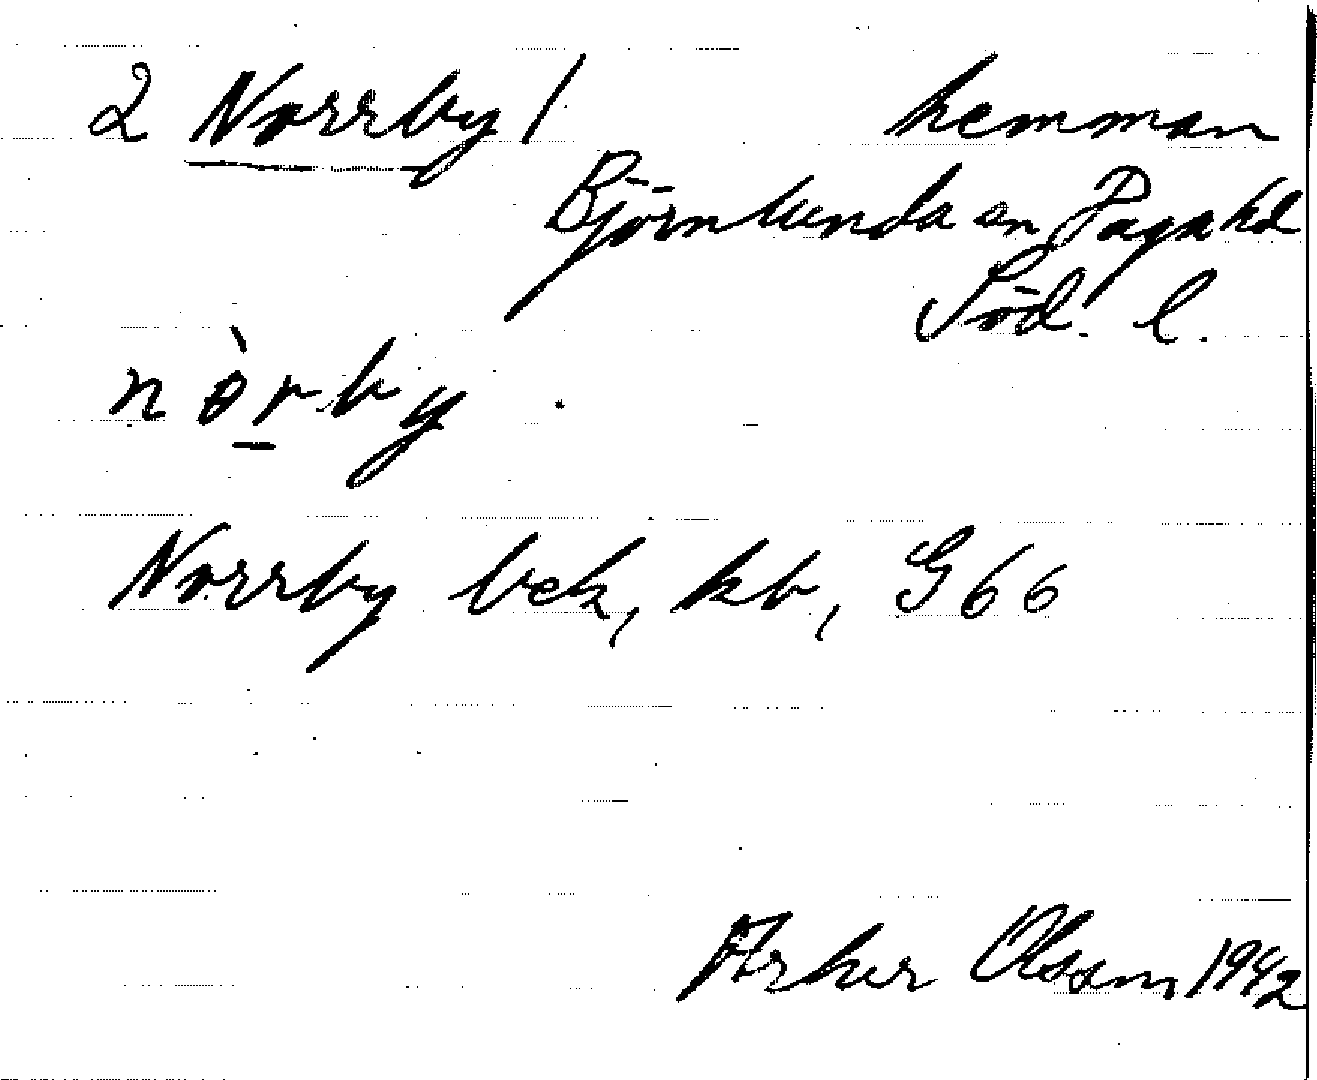 2 Norrby / hemman
Björnlunda sn Daga hd
Söd. l.
nò̱rby
Norrby bek, kb, G66
Olsson 1942